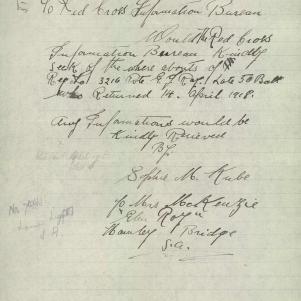 To Red Cross Information Bureau
Would the Red Cross
Information Bureau Kindly
Seek of the where abouts of
Reg No 3216 Pte E. J. Late 50 Batt
who Returned 14. April 1918.
Any Informations would be
Kindly Recieved
By
Sophie M. Kube
c/o Mrs McKenzie
"Glen Roy"
Hamley Bridge
S.A.